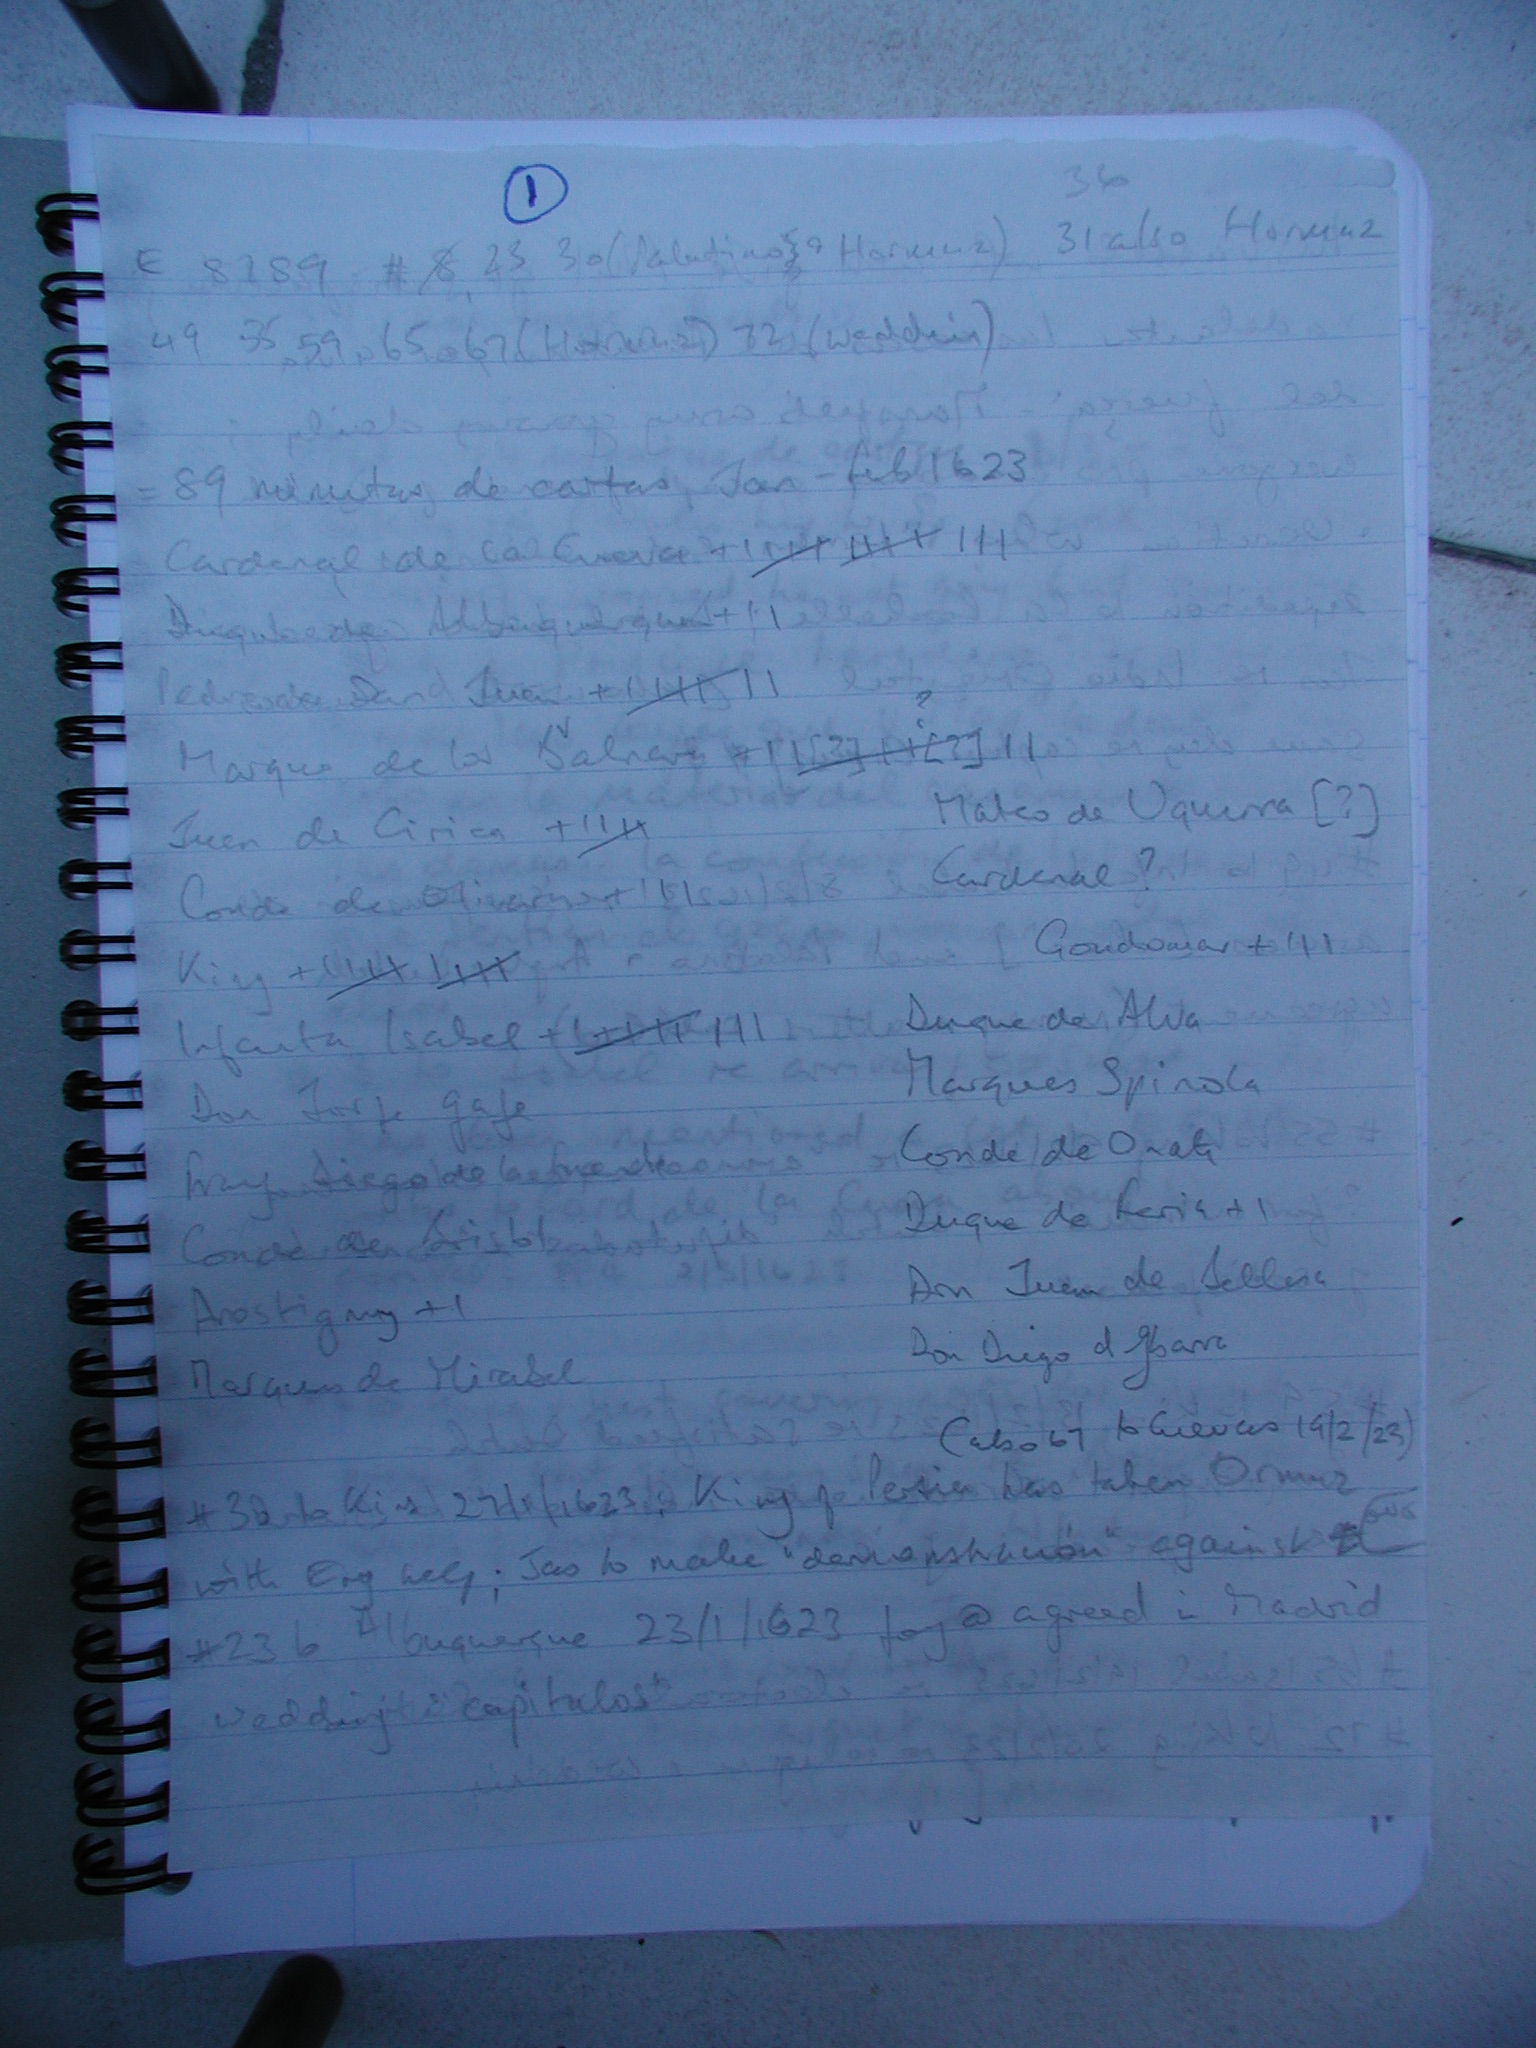 1
36
E 8289 # 8, 23 30 (Palatino & Hormuz) 31 also Hormuz
49 35, 59, 65, 67 (Hormuz) 72 (wedding)
= 89 minutas de cartas, Jan - feb 1623
Cardenal de la Cueva + 1 1111 1111 111
Duque de Albuquerque + 11
Pedro de San Juan + 11111 11
?
Marques de los Balnes + 1 1[?] 11[?] 11
Juan de Cirica + 1111
Mateo de Uquerra [?]
Conde de Olivares + 1111
Cardenal ?
King + 1111 1111
Gondomar + 111
Infanta Isabel + 11111 111
Duque de Alva
Don Jorje Gaje
Marques Spinola
Fray Diego de la Fuente
Conde de Onate
Conde de Bristol
Duque de Feria + 1
Arostiguy + 1
Don Juan de
Marques de Mirabel
Don Diego d Ibarra
(also 67 to Cuevas 19/2/23)
#30 to King 27/1/1623: King of Persia has taken Ormuz
with Eng help; Jas to make "demonstración" against
#23 to Albuquerque 23/1/1623 for @ agreed in Madrid
wedding "capitulos"